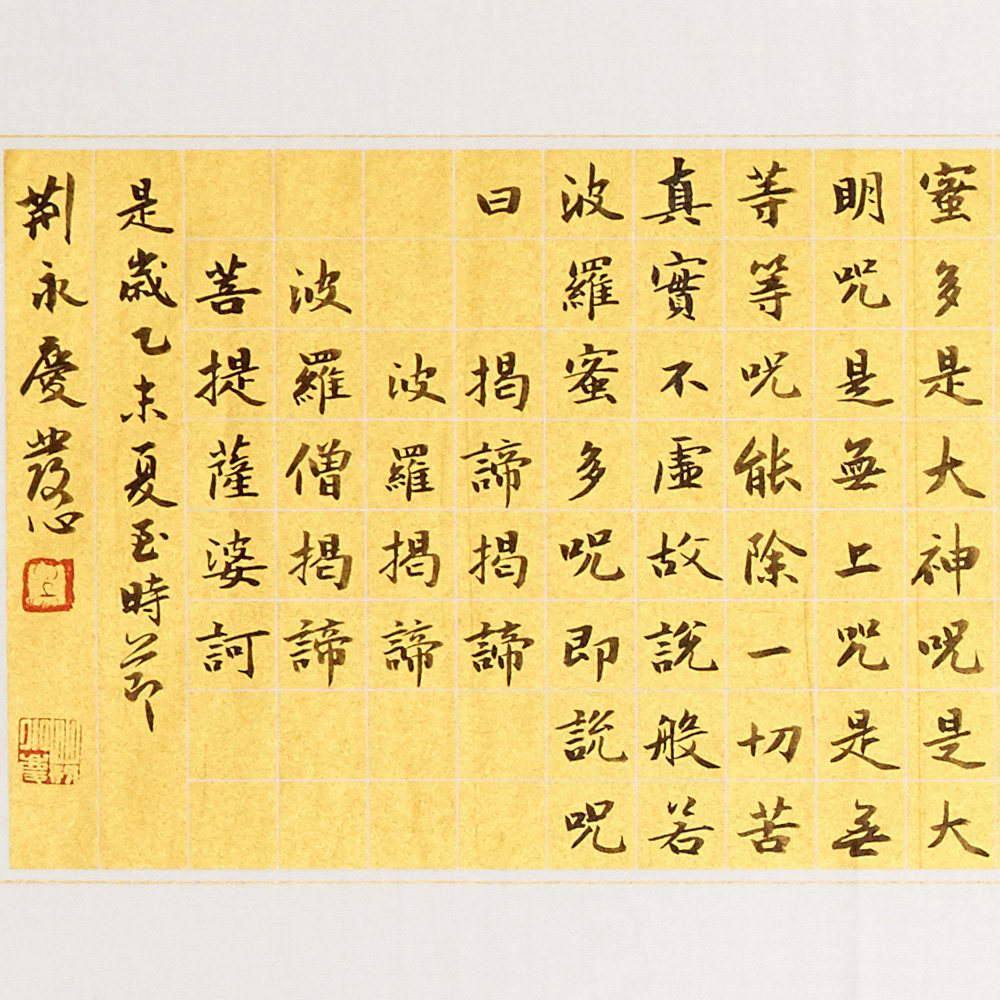 蜜多是大神呪是大
明呪是無上呪是無
等等呪能除一切苦
真實不虛故說般若
波羅蜜多呪即說呪
曰揭諦揭諦
波羅揭諦
波羅僧揭諦
菩提薩婆訶
是歲乙未夏至時節
荆永慶發心